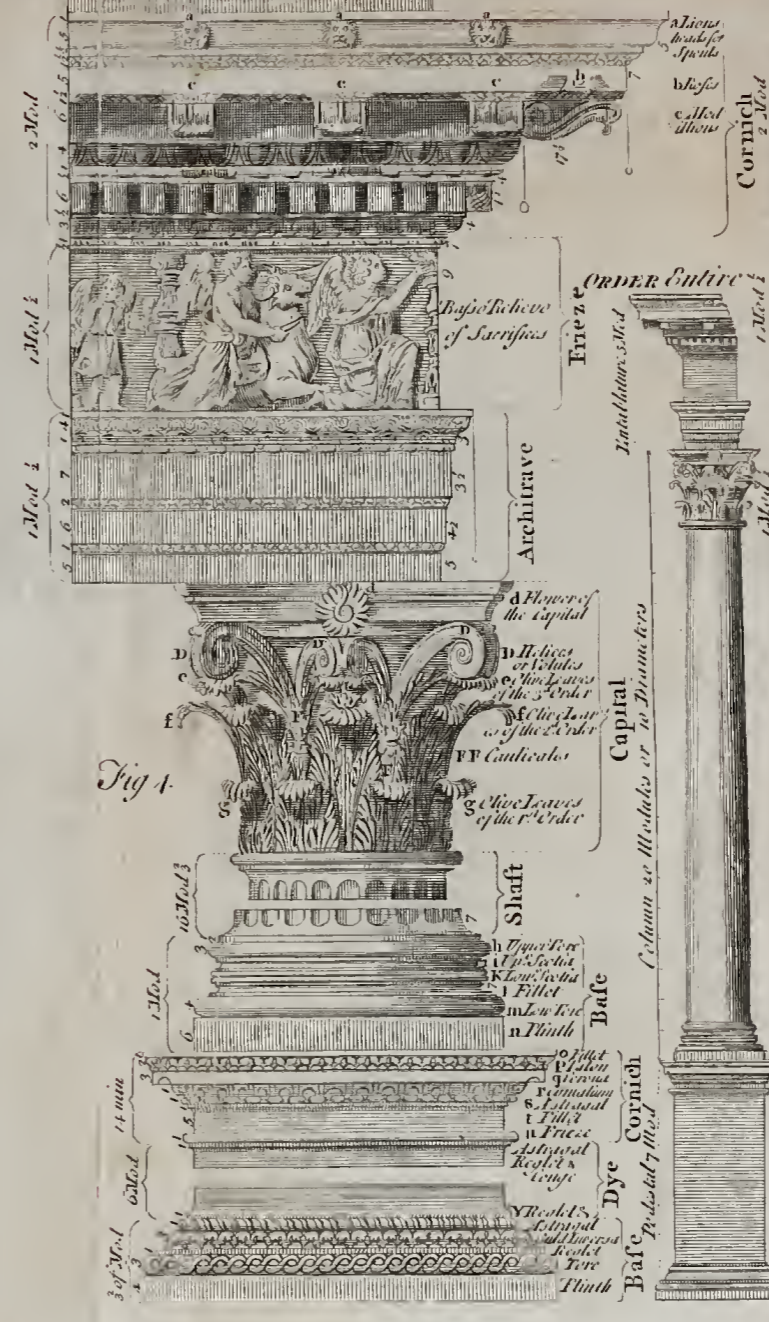 a a a
a Lions
heads for
Spouts
b Roses
c Mod
illions
Cornich
2 Mod
2 Mod
c c c
b
17½
Basso Relievo
of Sacrifices
Frieze
1 Mod ½
ORDER Entire
Entablature 5 Mod
1 Mod ½
Architrave
1 Mod ½
d Flower of
the Capital
D Helices
or Volutes
e Olive Leaves
of the 3d Order
f Olive Leav
es of the 2d Order
FF Caulicales
g Olive Leaves
of the 1st Order
Capital
Fig 4.
Column 20 Modules or 10 Diameters
16 Mod ⅔
Shaft
h Upper Tore
i Upr Scotia
K Lowr Scotia
l Fillet
m Low Tore
n Plinth
Base
1 Mod
o Fillet
p Talon
q Corona
r Cimatium
s Astragal
t Fillet
u Frieze
Cornich
14 min
Astragal
Reglet &
Conge
Dye
6 Mod
Y Reglet &
Astragal
Inversa
Reglet
Tore
Plinth
Base
⅔ of Mod
Pedestal 7 Mod